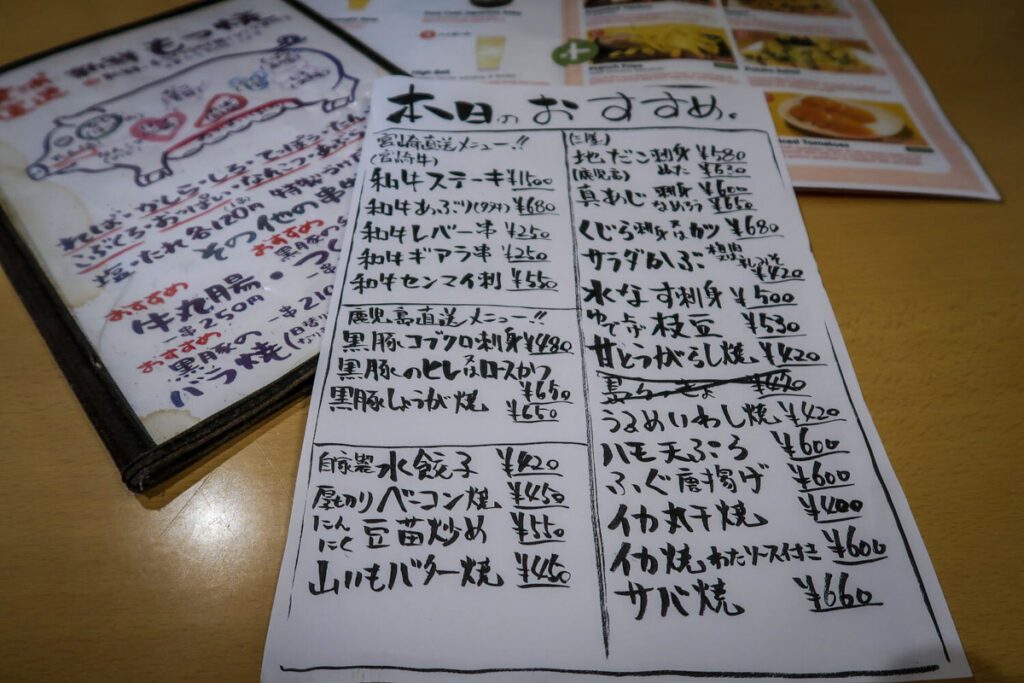 本日のおすすめ。
宮崎直送メニュー!!
(宮崎牛)
和牛ステーキ ¥1500
和牛あぶり(タタキ) ¥680
和牛レバー串 ¥250
和牛ギアラ串 ¥250
和牛センマイ刺 ¥550
鹿児島直送メニュー!!
黒豚コブクロ刺身 ¥480
黒豚のヒレ又はロースかつ
¥650
黒豚しょうが焼 ¥650
自家製水餃子 ¥420
厚切りベーコン焼 ¥450
にんにく豆苗炒め ¥550
山いもバター焼 ¥450
地だこ刺身 ¥580
¥630
(鹿児島)
真あじ 刺身 ¥600
なめろう ¥650
くじら刺身又はカツ ¥680
サラダかぶ
¥420
水なす刺身 ¥500
ゆでたて枝豆 ¥530
甘とうがらし焼 ¥420
¥420
うるめいわし焼 ¥420
ハモ天ぷら ¥600
ふぐ唐揚げ ¥600
イカ丸干焼 ¥400
イカ焼わたソース付き ¥600
サバ焼 ¥660
ればー・かしら・しろ・てっぽう・たん
こぶくろ・おっぱい・なんこつ・あぶら
塩・たれ各120円
その他の串
おすすめ
おすすめ
牛丸腸
一串250円
おすすめ
黒豚の
バラ焼
一串210